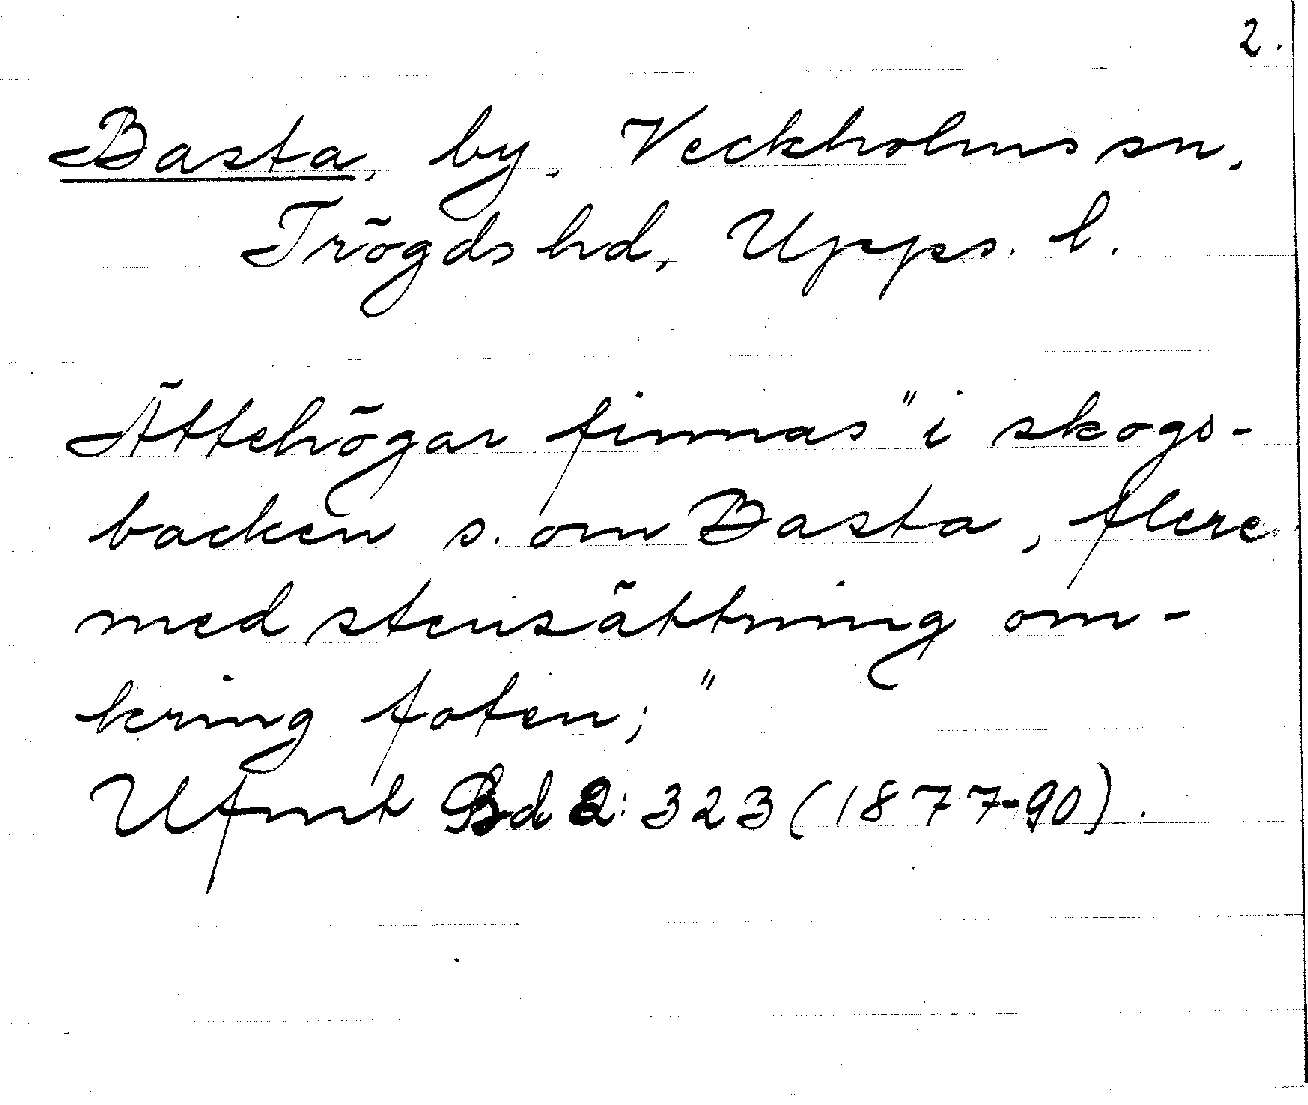 2.
Basta, by, Veckholms sn,
Trögds hd, Upps. l.
Ättehögar finnas "i skogs-
backen s. om Basta, flere
med stensättning om-
kring foten;"
Ufmt Bd 2: 323 (1877-90).